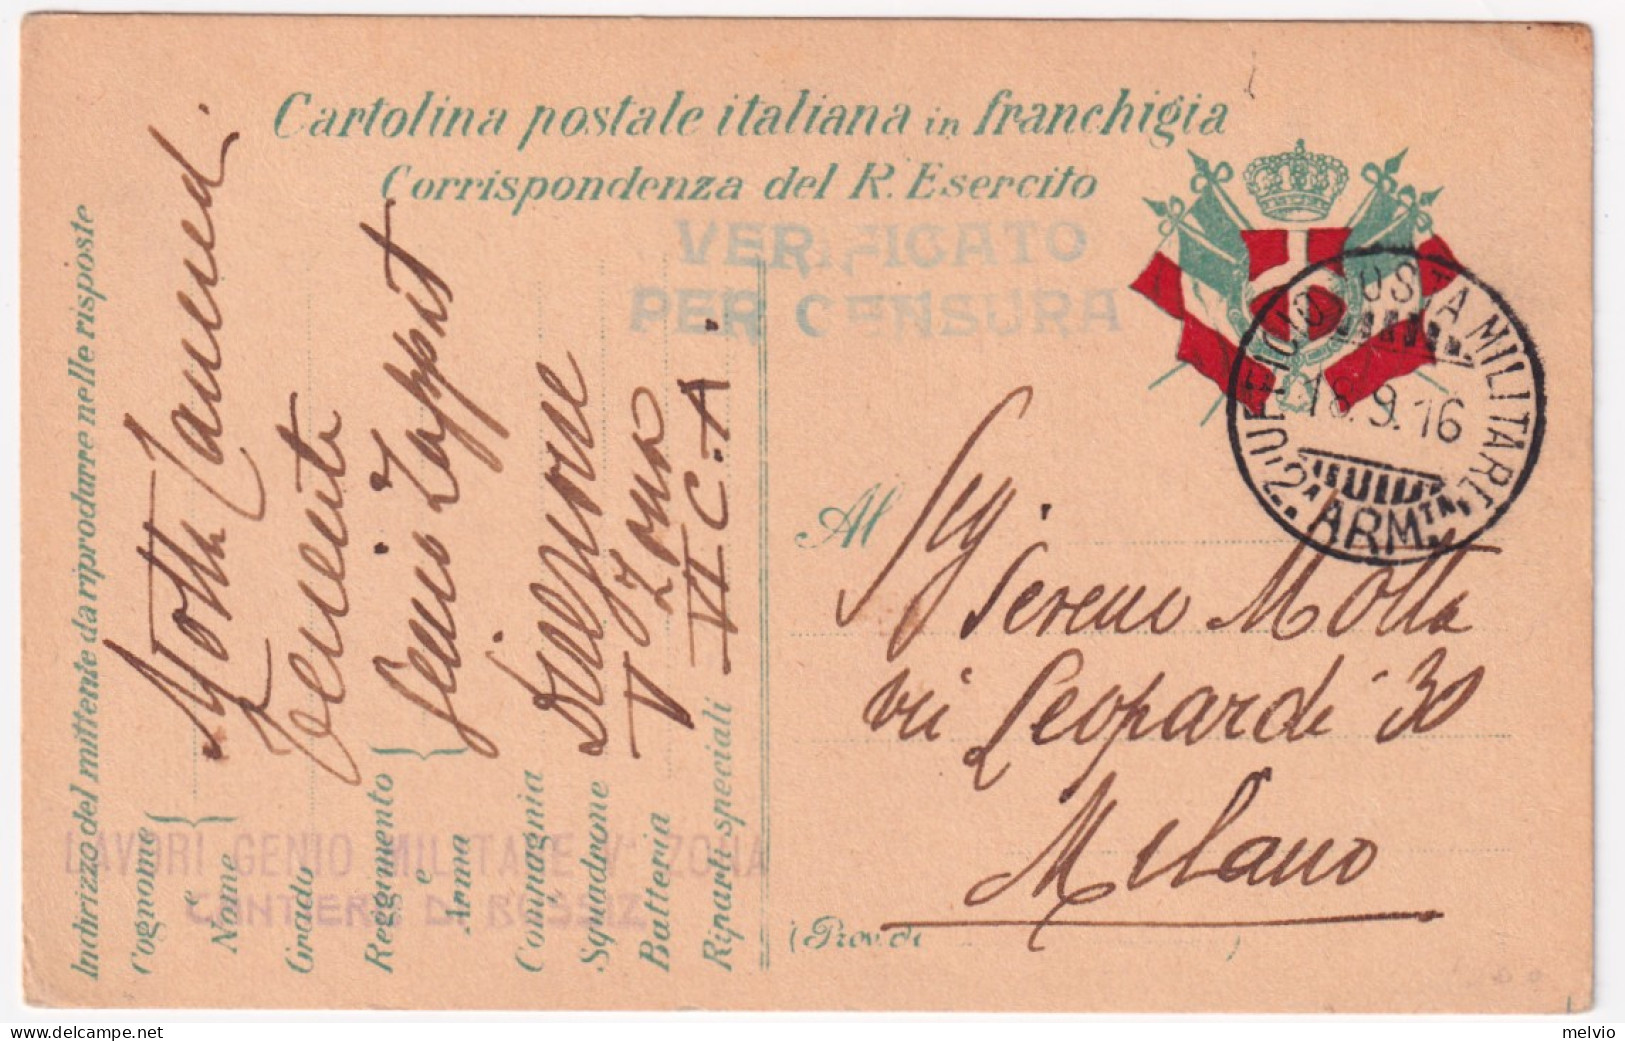 Cartolina postale italiana in franchigia
Corrispondenza del R. Esercito
VERIFICATO
PER CENSURA
UFFICIO POSTA MILITARE
18.9.16
2ª ARMTA
Indirizzo del mittente da riprodurre nelle risposte
Cognome
e
Nome
Motta
Grado
Tenente
Reggimento
e
Arma
Genio Zappit
Compagnia
Squadrone
Direzione
Batteria
V Zona
Riparti speciali
VI C. A.
LAVORI GENIO MILITARE Vª ZONA
CANTIERE DI ROSSIZ
Al
Sig.
Sereno Motta
via Leopardi 30
Milano
(Prov. di )
melvio